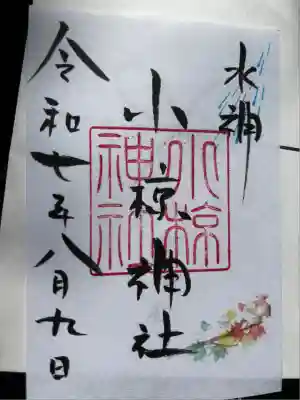 水神
小椋神社
小椋
神社
令和七年八月九日